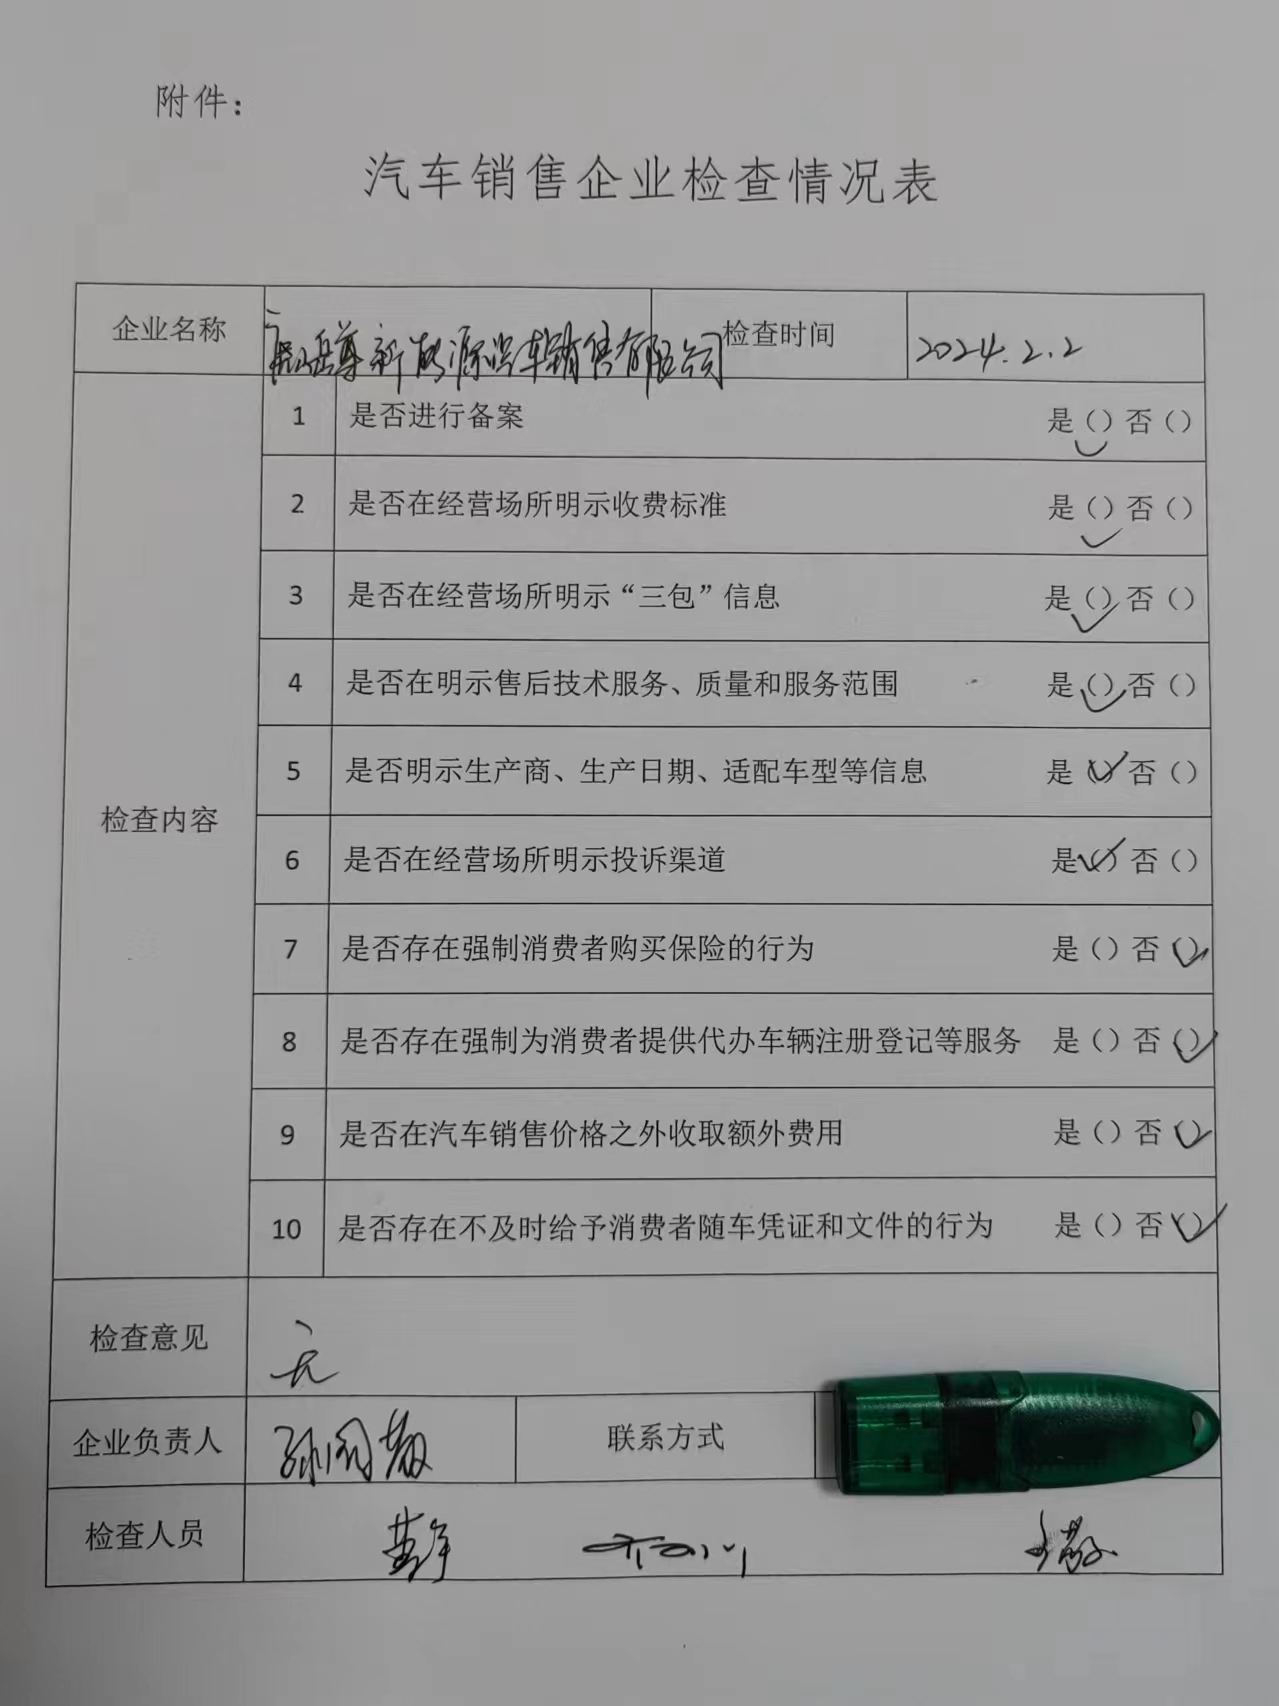 附件：
汽车销售企业检查情况表
企业名称 岳尊新能源汽车销售有限公司 检查时间 2024.2.2
检查内容
1 是否进行备案 是（）否（）
2 是否在经营场所明示收费标准 是（）否（）
3 是否在经营场所明示“三包”信息 是（）否（）
4 是否在明示售后技术服务、质量和服务范围 是（）否（）
5 是否明示生产商、生产日期、适配车型等信息 是（）否（）
6 是否在经营场所明示投诉渠道 是（）否（）
7 是否存在强制消费者购买保险的行为 是（）否（）
8 是否存在强制为消费者提供代办车辆注册登记等服务 是（）否（）
9 是否在汽车销售价格之外收取额外费用 是（）否（）
10 是否存在不及时给予消费者随车凭证和文件的行为 是（）否（）
检查意见 无
企业负责人 联系方式
检查人员